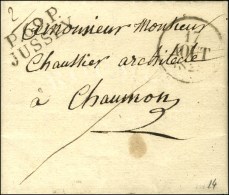 2
P.69.P.
JUSSEY
17
AOUT
A Monsieur Monsieur
Chaussier architecte
à Chaumon
14